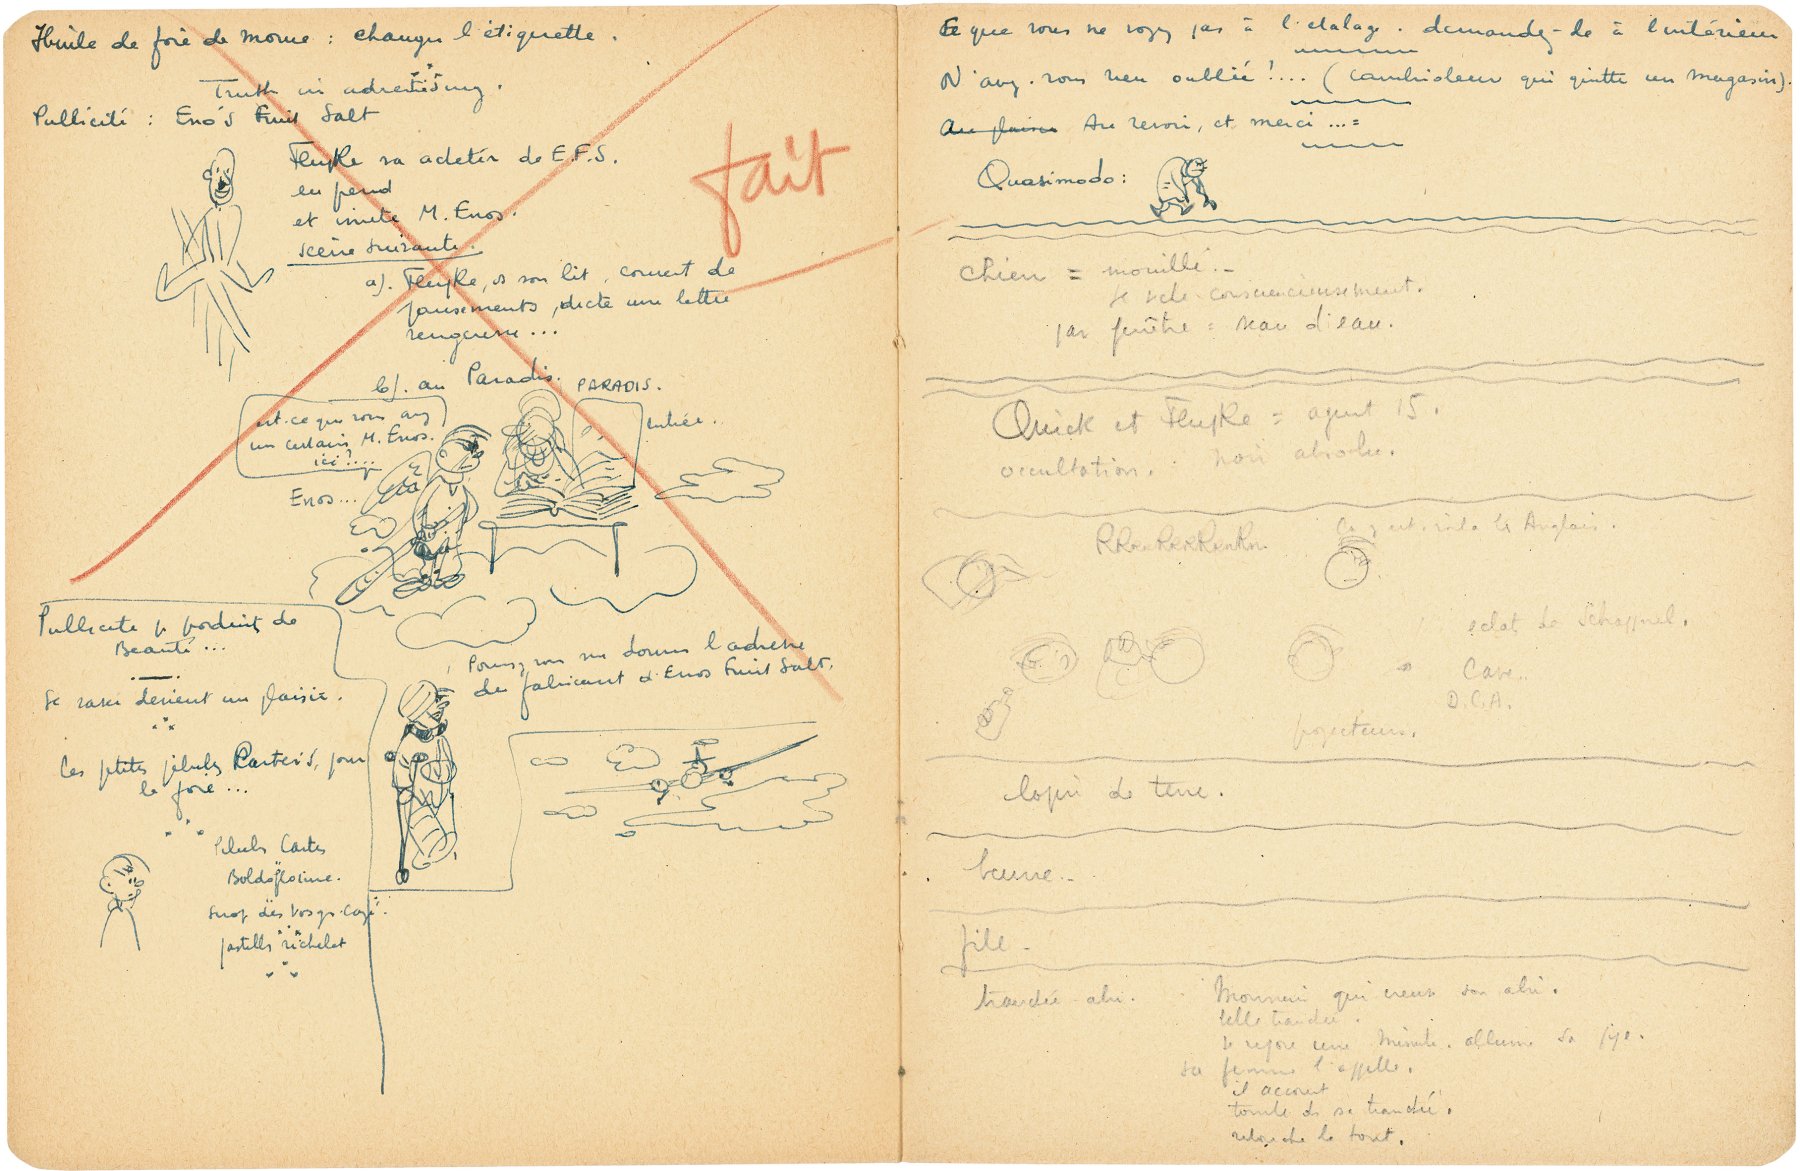 Huile de foie de morue : changer l'étiquette.
Truth in advertising.
Publicité : Eno's Fruit Salt
Flupke va acheter de E.F.S.
en prend
et invite M. Enos.
scène suivante.
a). Flupke, ds son lit, couvert de
pansements, dicte une lettre
vengeresse...
b). au Paradis. PARADIS.
est-ce que vous avez
un certain M. Enos.
ici ?....
entrée..
Enos...
fait
Publicité pr produits de
Beauté...
Pouvez-vous me donner l'adresse
du fabricant d'Enos Fruit Salt.
Se raser devient un plaisir.
Les petites pilules Karter's, pour
le foie...
Pilules Carters
Boldoflorine.
Sirop des Vosges Cazé.
pastilles richelet
Ce que vous ne voyez pas à l'étalage. demandez-le à l'intérieur
N'avez-vous rien oublié ?.... (cambrioleur qui quitte un magasin).
Au plaisir Au revoir, et merci ...=
Quasimodo :
chien = mouillé..
se sèche consciencieusement.
par fenêtre = seau d'eau.
Quick et Flupke = agent 15.
occultation. noir absolu.
Ça y est. voilà les Anglais.
éclat de Schrappnel.
Cave..
D.C.A.
projecteurs.
lopin de terre.
beurre..
file.
tranchée-abri. Monsieur qui creuse son abri.
belle tranchée.
se repose une minute. allume sa pipe.
sa femme l'appelle.
il accourt
tombe ds sa tranchée.
rebouche le tout.